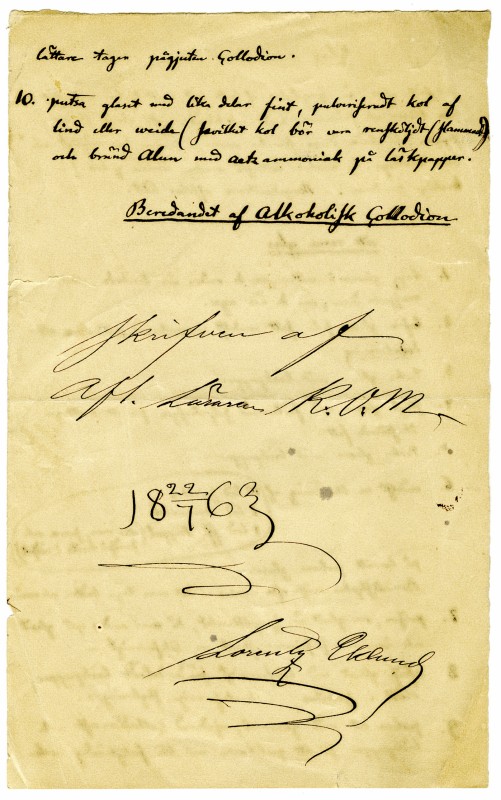 lättare tagen pågjuten Collodion.
10. putsa glaset med lika delar fint, pulveriseradt kol af
lind eller weide (hvilket kol bör vara
och bränd Alun med aetzammoniak på läskpapper.
Beredandet af Alkoholisk Collodion
Skrifven af
Aft. Läraren K.O.M.
18 22/7 63
Lorentz Eklund